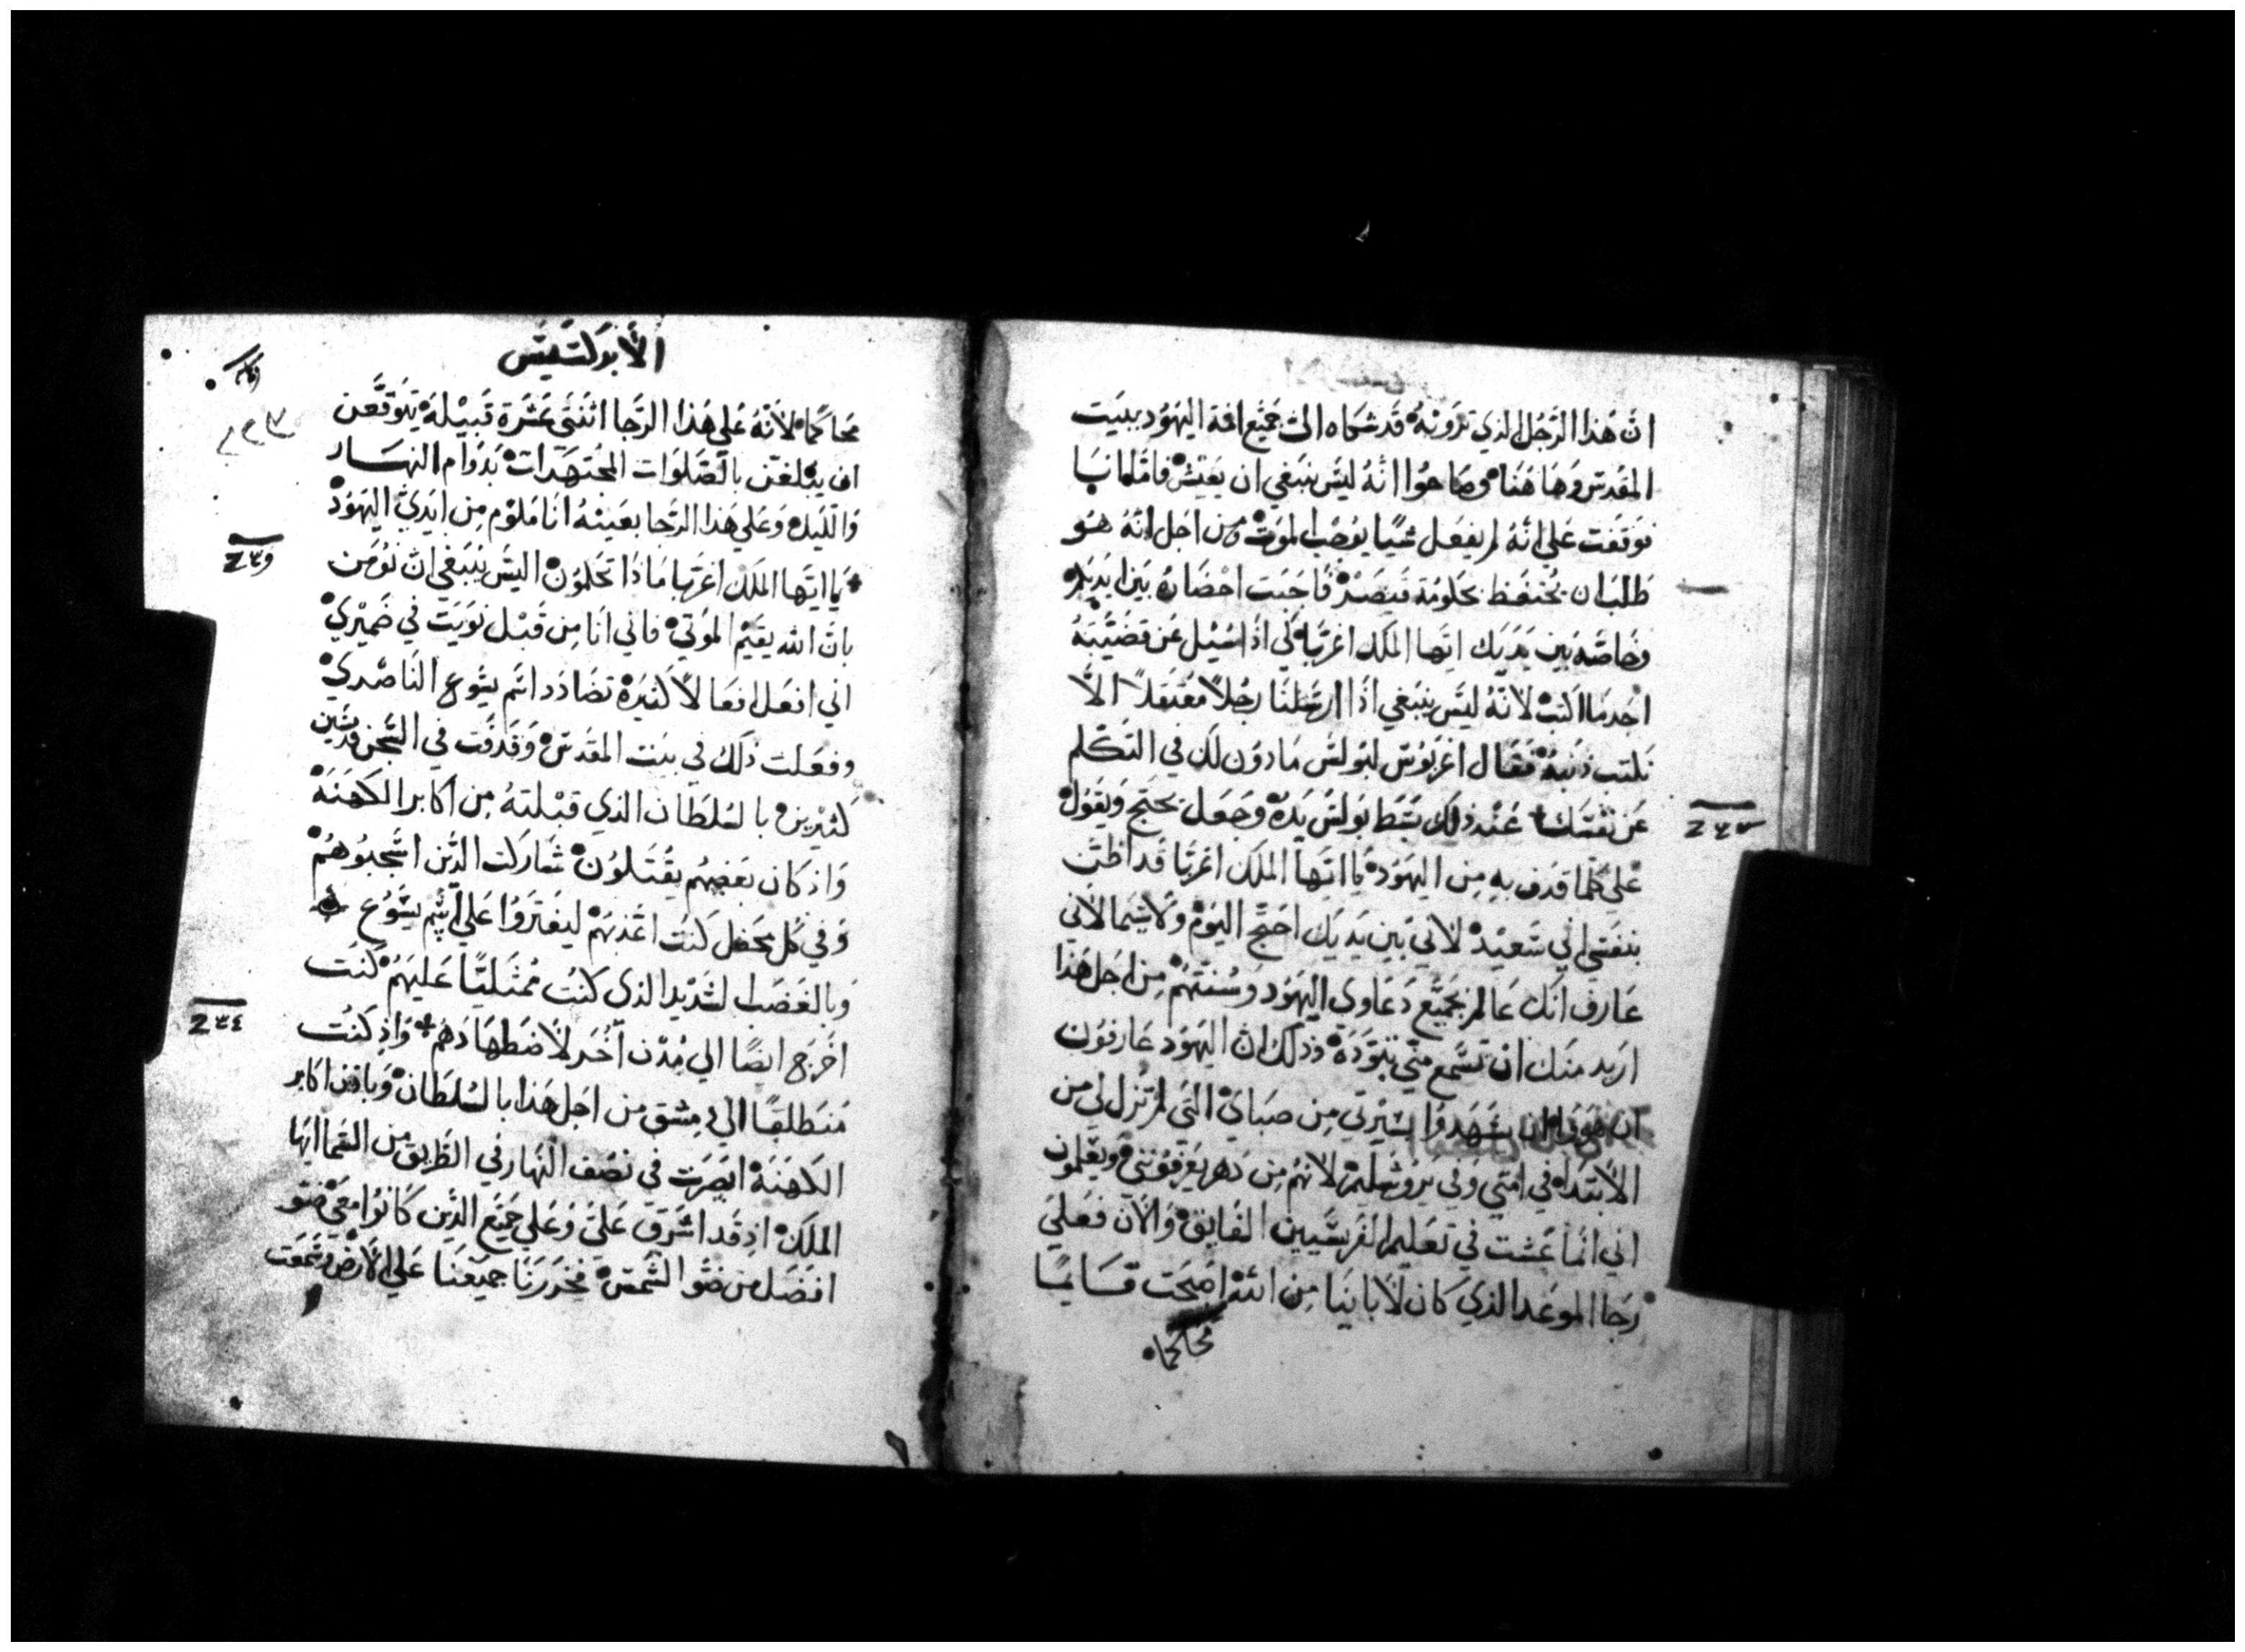 ان هذا الرَّجُل الذي ترَونهُ قَد شَكاه اليَّ جَميْع امة اليهُود ببيَت
المقدسْ وَهَا هُنَا وصَاحوُا انهُ ليسَ ينبَغي ان يعَيشْ فامَّا انا
فوَقَفت عَلي انهُ لم يفعَل شيًا يوُجْب الموَتْ ومن اجَل انهُ هـوَ
طَلبَ ان يُحتفَظ بحكومَة قيصَرْ فاَجَبت احْضَارهُ بَين ايديكم
وخَاصّهً بَين يَديَك ايّها الملَك اغرِبّا لكي اذا سُيْل عَن قضيّتهُ
اجُد مَا اكتبْ لانّهُ ليسَ ينبغي اذَا ارسَلنَا رجُلاً معُتقَلاً الاَّ
نكتب ذنبهُ فقَال اغرَبوُس لبَولسَ مَاذوُن لكَ في التكَلم
عَن نفسَكْ عنْد ذلكَ بسَط بوَلسُ يَدهُ وجَعَل يحتَج ويَقوُل
عَلي كلمَا قدف بهِ مِن اليهَودْ يَا ايّها الملَك اغربَّا قَد اظنّ
بنَفسَي اني سَعيْدْ لاني بَين يَديَك احتَج اليوَم ولاسيَما لاني
عَارف انكَ عَالم بجميَع دَعَاوي اليهُود وَسُنتَهمْ مِن اجَل هَذا
ارَيد منكَ انْ تسَمع منّي بتوَدَهْ وذلَك ان اليهَود عَارفوَن
ان يشَهدوُا بسَيْرتي مِن صبَايَ التي لم تزل لي من
الابتدَاء في امتي وفي يرَوشَليم لانهم مِن دَهر يعَرفونَني ويعَلمون
اني انمَا عَشت في تعَليم الفرَيسَيين الفَايقْ وَالان فعَلي
رجَا الموعَد الذي كاَن لابَاينَا مِن اللهْ اصبَحت قـَايـمًا
محَاكما
الأبرَكسَيس
محَاكمًا لانهُ عَلي هَذا الرّجَا اثنَتي عَشَرة قَبيْلهْ يَتوقَّعن
ان يبْلغَن بالصّلوَات المجُتهَدات بَدوَام النهـَار
وَالليَلْ وَعَلي هَذا الرّجَا بعَينهُ انَا ملوَم مِن ايَدي اليَهوُدْ
يَا ايّها الملَك اغربا مَاذَا تحَكموُن اليسَ ينبَغي انْ نوُمَن
بانَ الله يقيَمْ الموَتيْ فاني انَا مِن قَبْل نوَيَت في ضَميْريْ
اني افعَل افعَالاً كثيَرة تضَادَد اسَم يسَوع النَاصْريْ
وفعَلت ذلكَ في بيَت المقدسْ وَقدَفَت في السّجَن قديسَين
كثيْرينْ بالسُلطَان الذي قبْلتهُ مِن اكَابر الكَهنَةْ
وَاذ كَان بَعَضهُم يقُتَلوُنْ شَاركَت الذّين اشّجبوُهُمْ
وَفي كُل محَفل كنَت اعَذبَهَمْ ليفتَروُا عَلي اسَم يسَوُع
وَبالغَضَب الشدَيْد الذي كنَتُ ممُتَليًا عَليَهمُ كنَت
اخَرج ايضًا الي مُدْن اخُر لاَضطَهادَهمُ وَاذ كنَتُ
مَنطَلقًا اليْ دمِشق من اجَل هَذا بالسُلطَانْ وَباذن اكَابر
الكَهنَة ابصَرت في نصَف النهَار في الطّريق من السَّمَا ايّها
الملَكْ اذ قَد اشَرق عَليَّ وَعَلي جَميَع الذّين كَانوُا معَي ضَو
افضَل من ضَو الشّمَسْ فخَررَنا جميَعَنا عَلي الاَرضْ وسَمَعَت